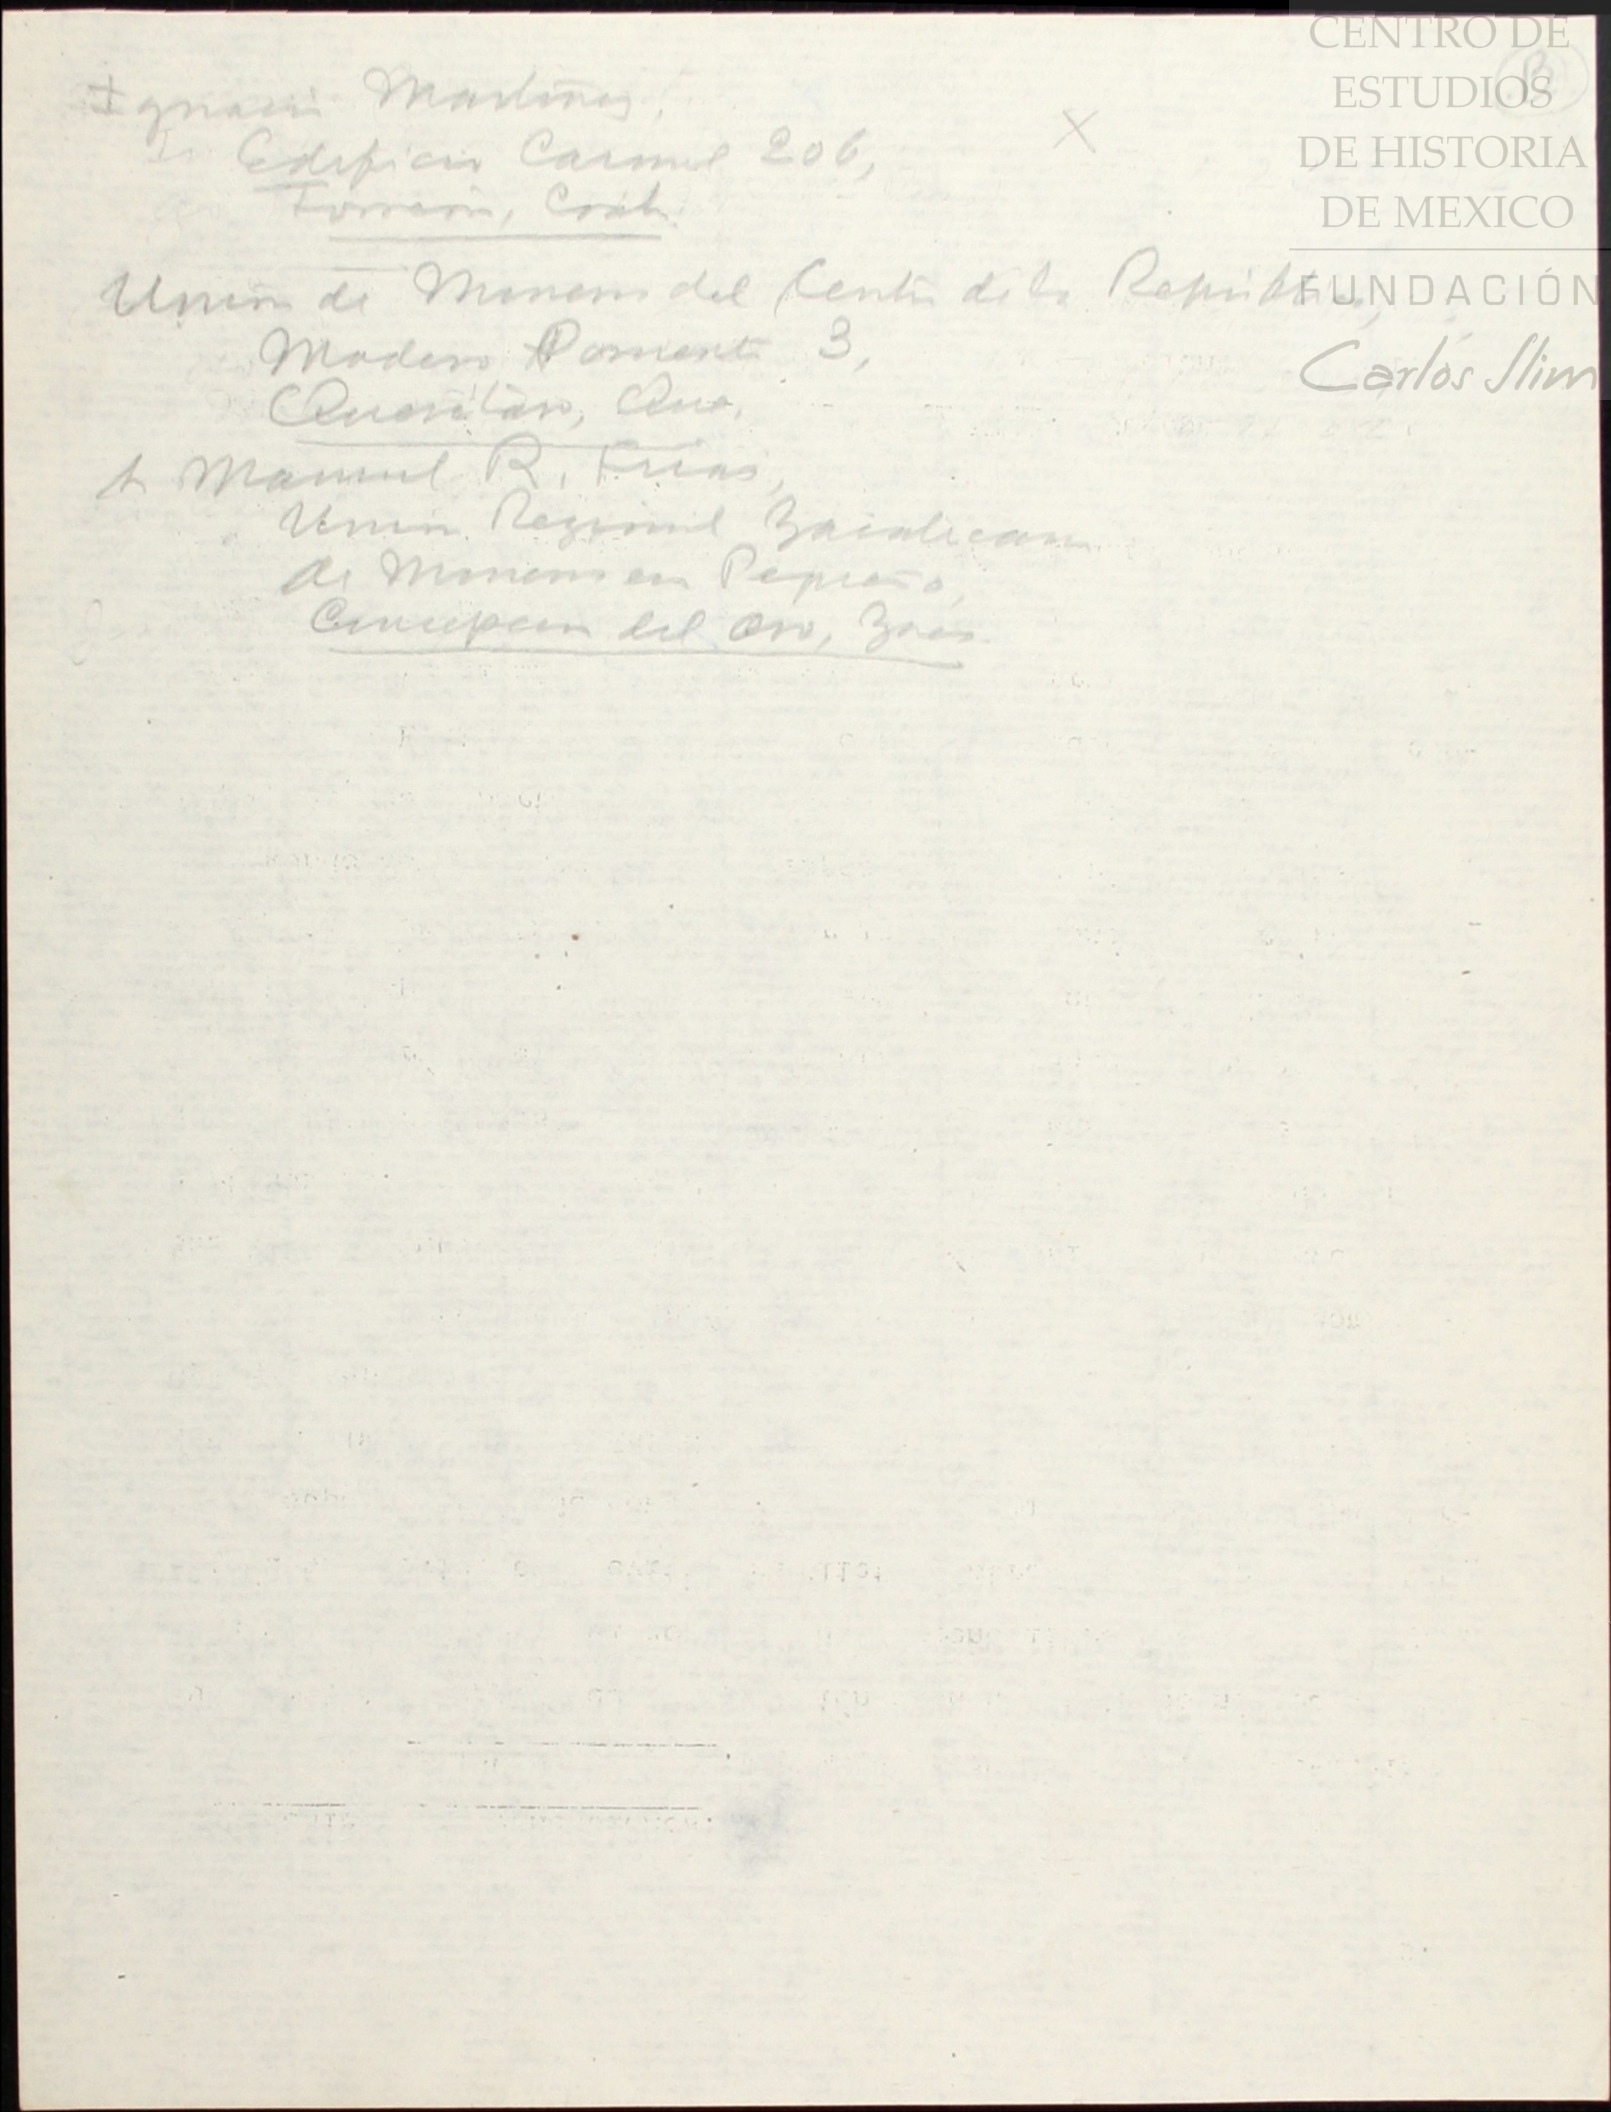 Ignacio Martínez,
Edificio Carmel 206,
Torreón, Coah.
Unión de Mineros del Centro de la República,
Madero Poniente 3,
Querétaro, Qro.
Manuel R. Frias,
Unión Regional Zacatecana
de Mineros en Pequeño,
Concepcion del Oro, Zacs.
X
CENTRO DE
ESTUDIOS
DE HISTORIA
DE MEXICO
FUNDACIÓN
Carlos Slim